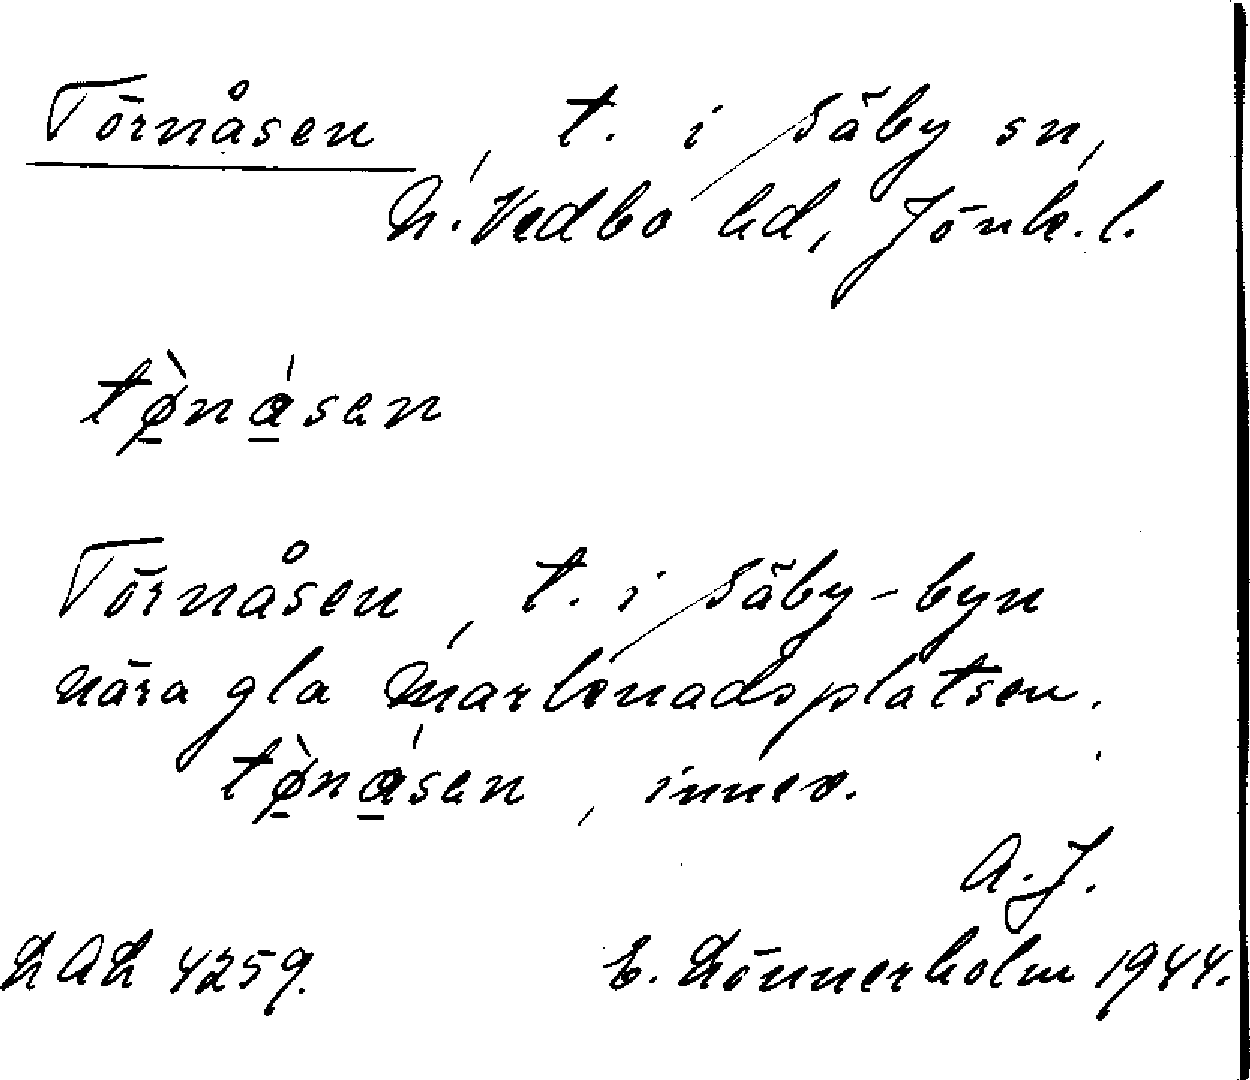 Törnåsen, t. i Säby sn,
N. Vedbo hd, Jönk. l.
tø̀nɑ́sen
Törnåsen, t. i Säby-byn
nära gla marknadsplatsen.
tø̀nɑ́sen, innev.
A. J.
LAL 4259. E. Lönnerholm 1944.